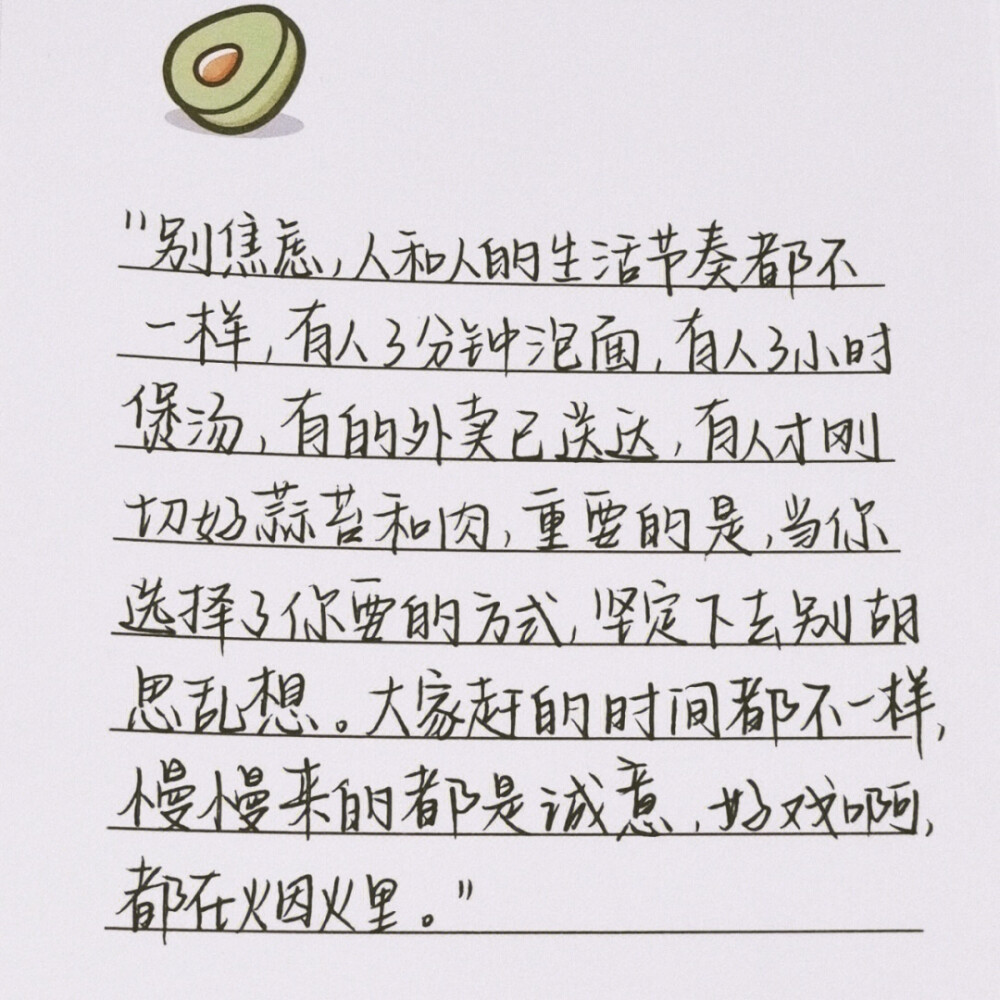 "别焦虑,人和人的生活节奏都不
一样,有人3分钟泡面,有人3小时
煲汤,有的外卖已送达,有人才刚
切好蒜苔和肉,重要的是,当你
选择了你要的方式,坚定下去别胡
思乱想。大家赶的时间都不一样,
慢慢来的都是诚意,好戏啊,
都在烟火里。"